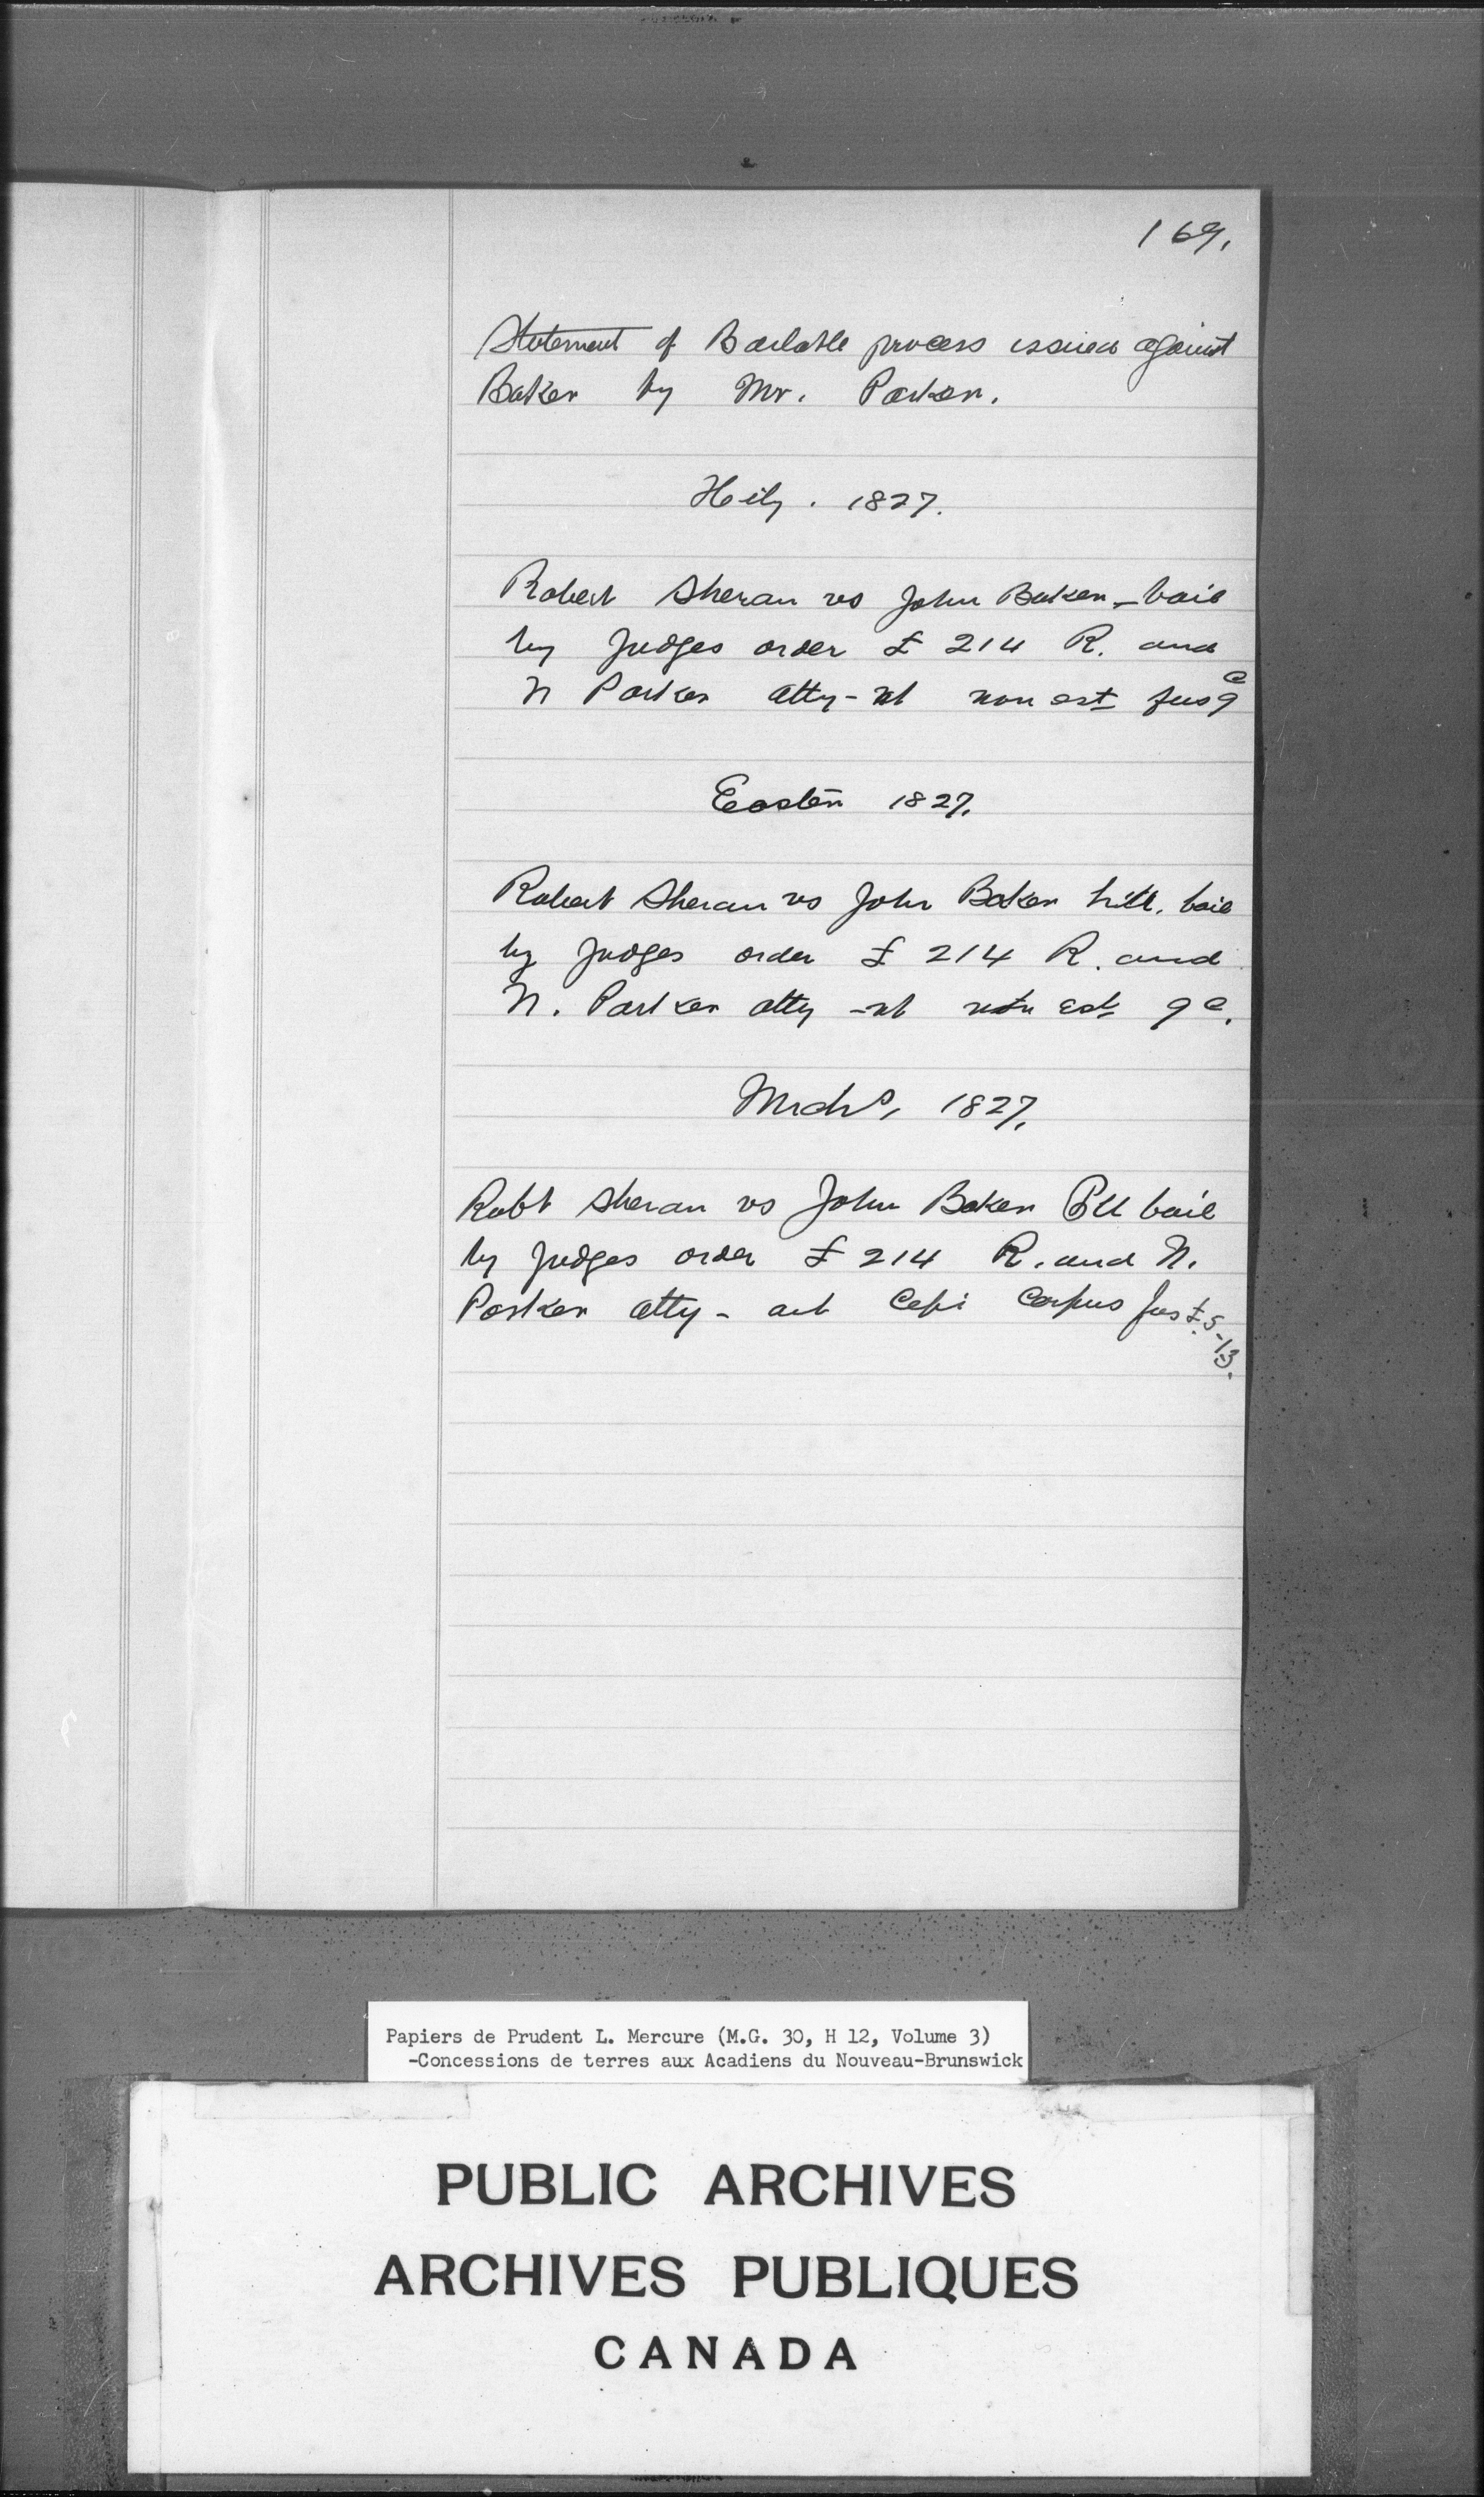 169.
Statement of Bailable process issued against
Baker by Mr. Parker.
Hily. 1827.
Robert Sheran vs John Baker - bail
by Judges order £ 214 R. and
N Parker atty - non est
Easter 1827.
Robert Sheran vs John Baker bail
by Judges order £ 214 R. and
N. Parker atty - est
Michs, 1827.
Robt Sheran vs John Baker bail
by Judges order £ 214 R. and N.
Parker atty - Cepi Corpus £5-13.
Papiers de Prudent L. Mercure (M.G. 30, H 12, Volume 3)
-Concessions de terres aux Acadiens du Nouveau-Brunswick
PUBLIC ARCHIVES
ARCHIVES PUBLIQUES
CANADA